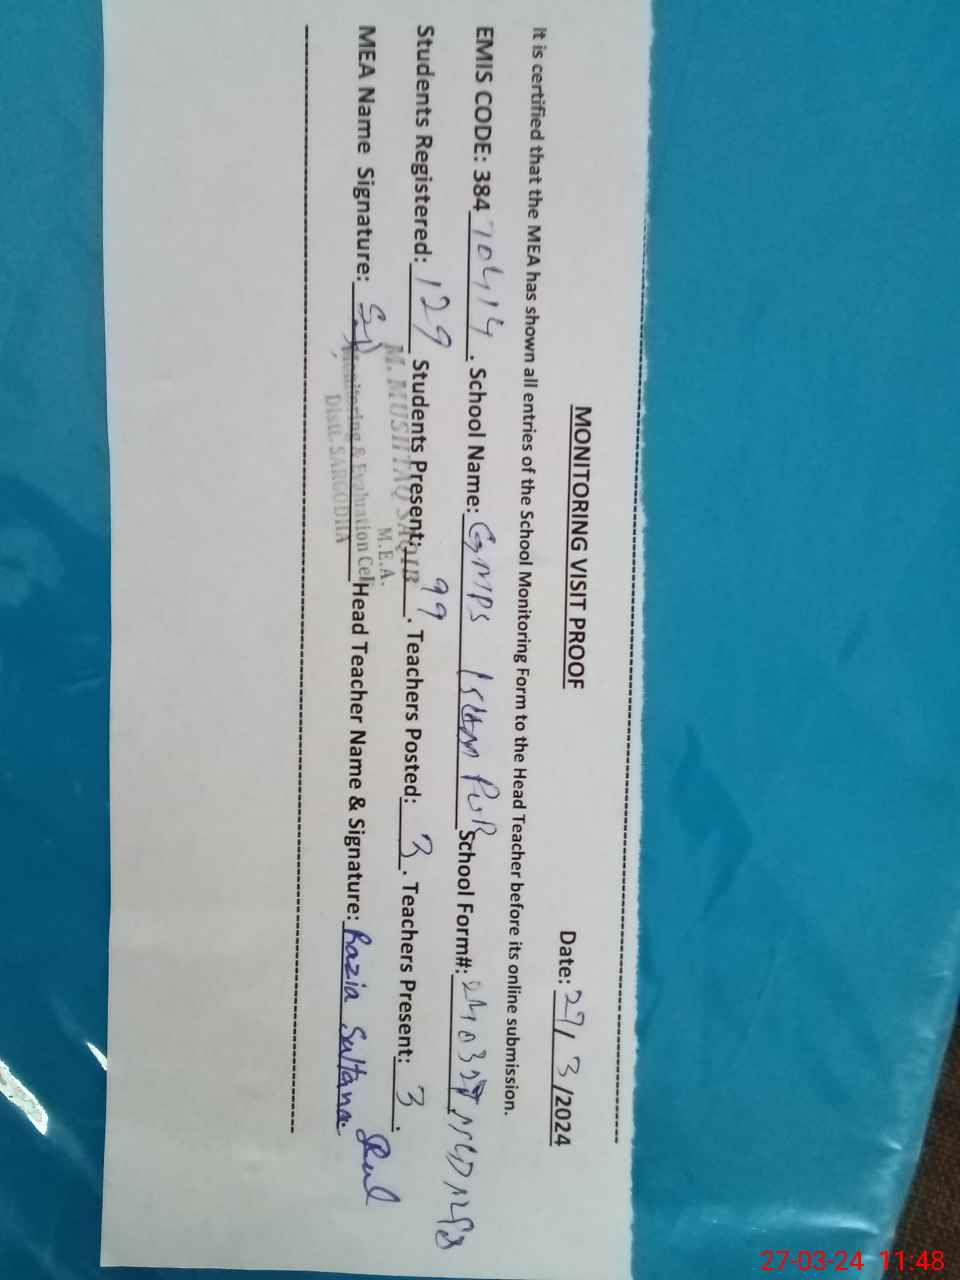 MONITORING VISIT PROOF
Date: 27/3/2024
It is certified that the MEA has shown all entries of the School Monitoring Form to the Head Teacher before its online submission.
EMIS CODE: 384 70414. School Name: GMPS PUR School Form#:
Students Registered: 129 Students Present: 99. Teachers Posted: 3. Teachers Present: 3.
M. MUSHTAQ SAQIB
M.E.A.
MEA Name Signature: Head Teacher Name & Signature: Razia Sultana
Monitoring & Evaluation Cell
Distt. SARGODHA
27-03-24 11:48